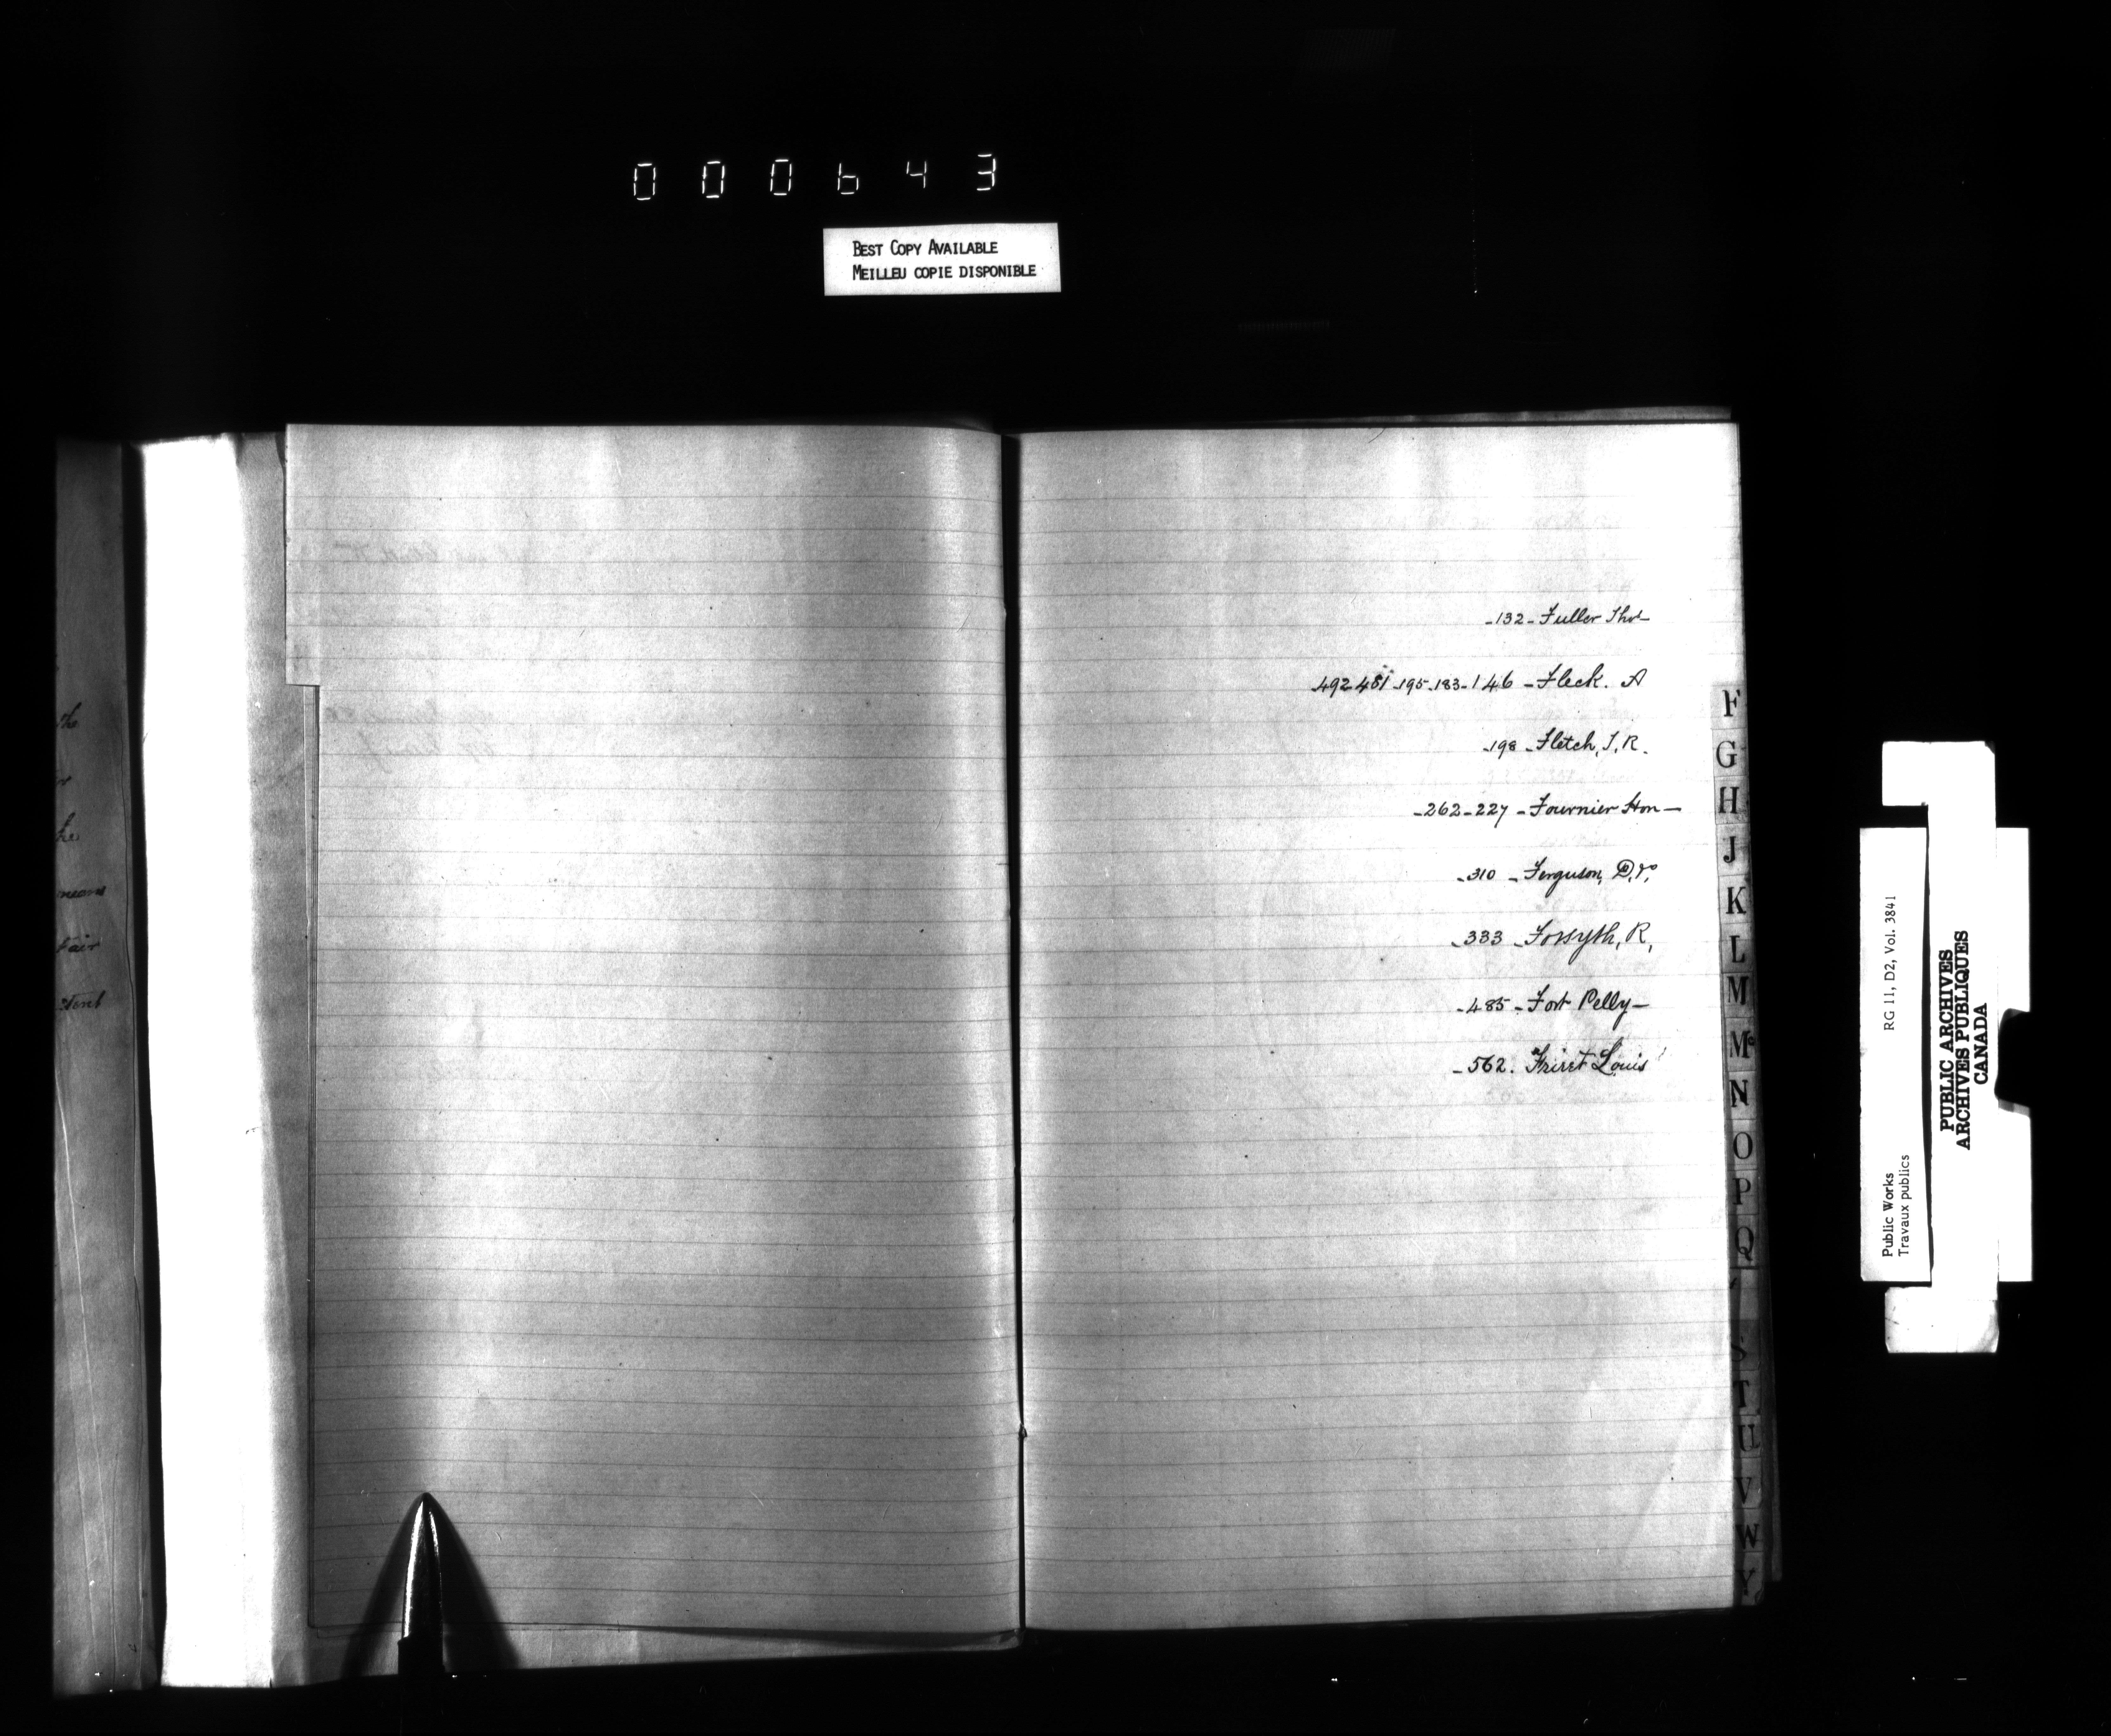 000643
BEST COPY AVAILABLE
MEILLEU COPIE DISPONIBLE
the
he
means
fair
-132- Fuller Thos
492-481-195-183-146- Fleck. A
-198- Fletch, J, R.
-262-227- Fournier Hon-
-310- Ferguson,
-333- Forsyth, R,
-485- Fort Pelly-
-562. Louis
F
G
H
J
K
L
M
Mc
N
O
P
Q
S
T
U
V
W
Y
Public Works
Travaux publics
RG 11, D2, Vol. 3841
PUBLIC ARCHIVES
ARCHIVES PUBLIQUES
CANADA